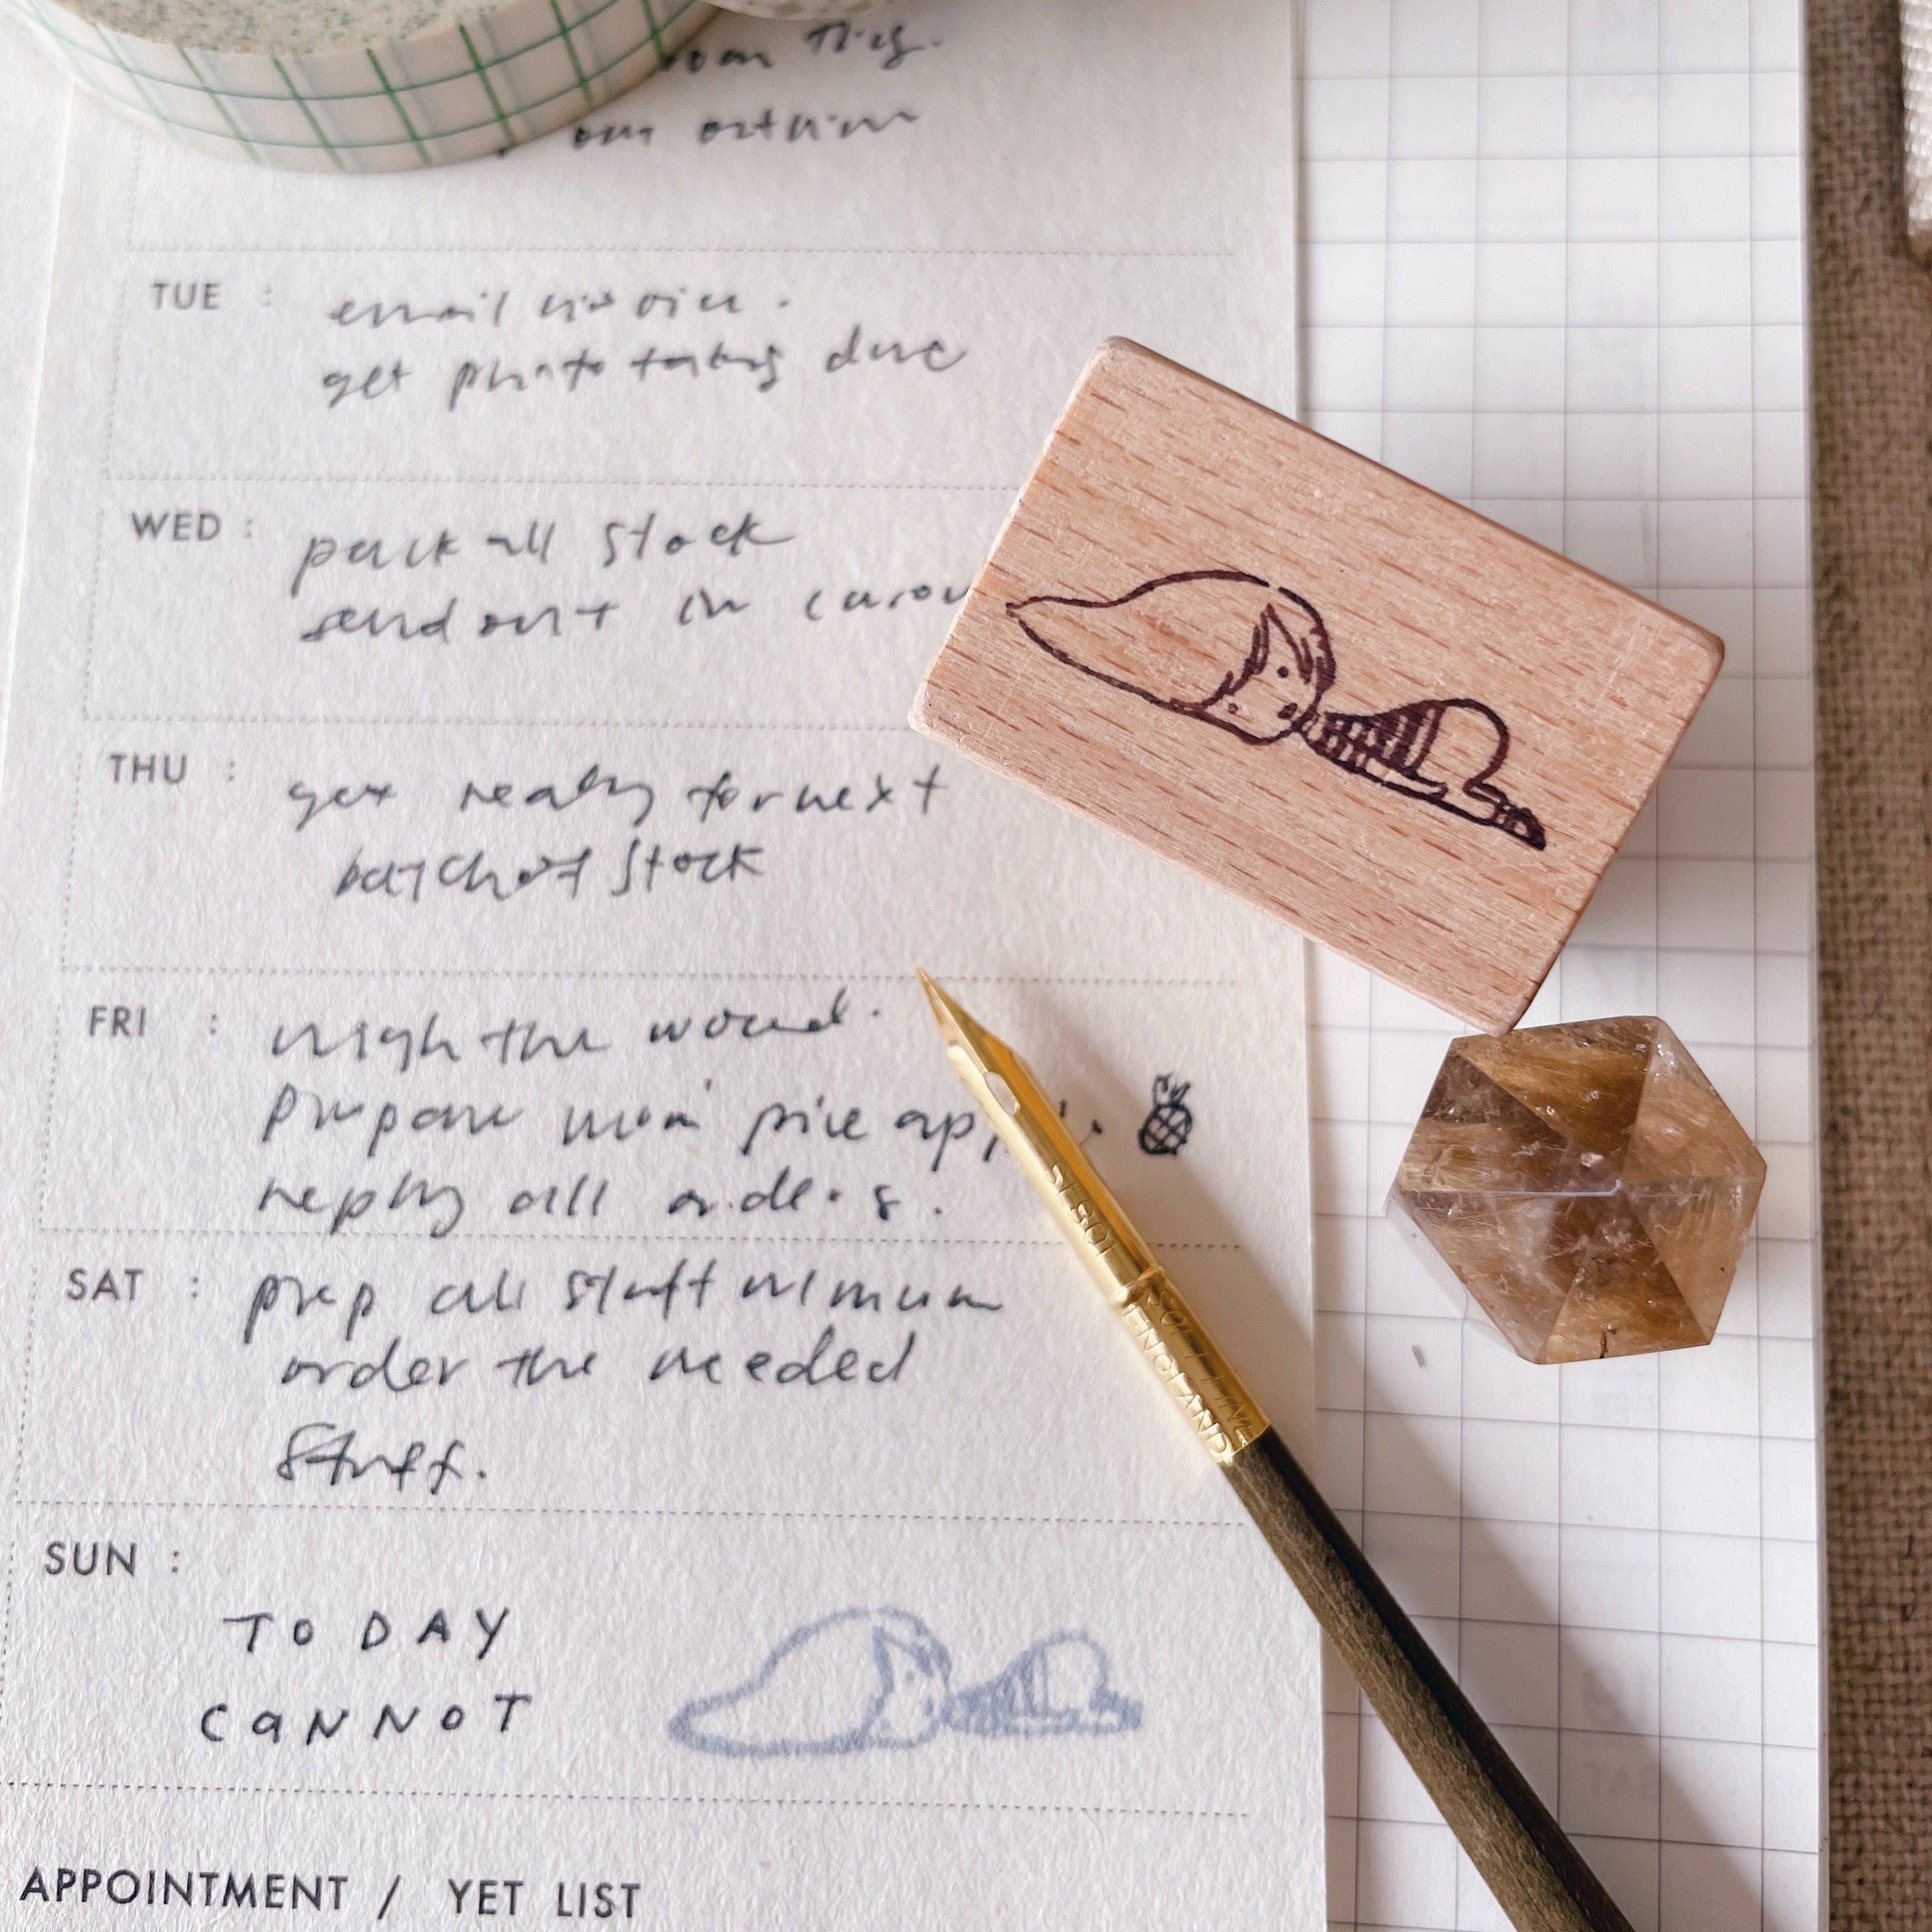 TUE :
email invoice.
get photo taking done
WED :
pack all stock
send out in
THU :
get ready for next
batch of stock
FRI :
weigh the wound.
prepare mom pine
reply all orders.
SAT :
prep all stuff
order the needed
stuff.
SUN :
TODAY
CANNOT
APPOINTMENT / YET LIST
ENGLAND